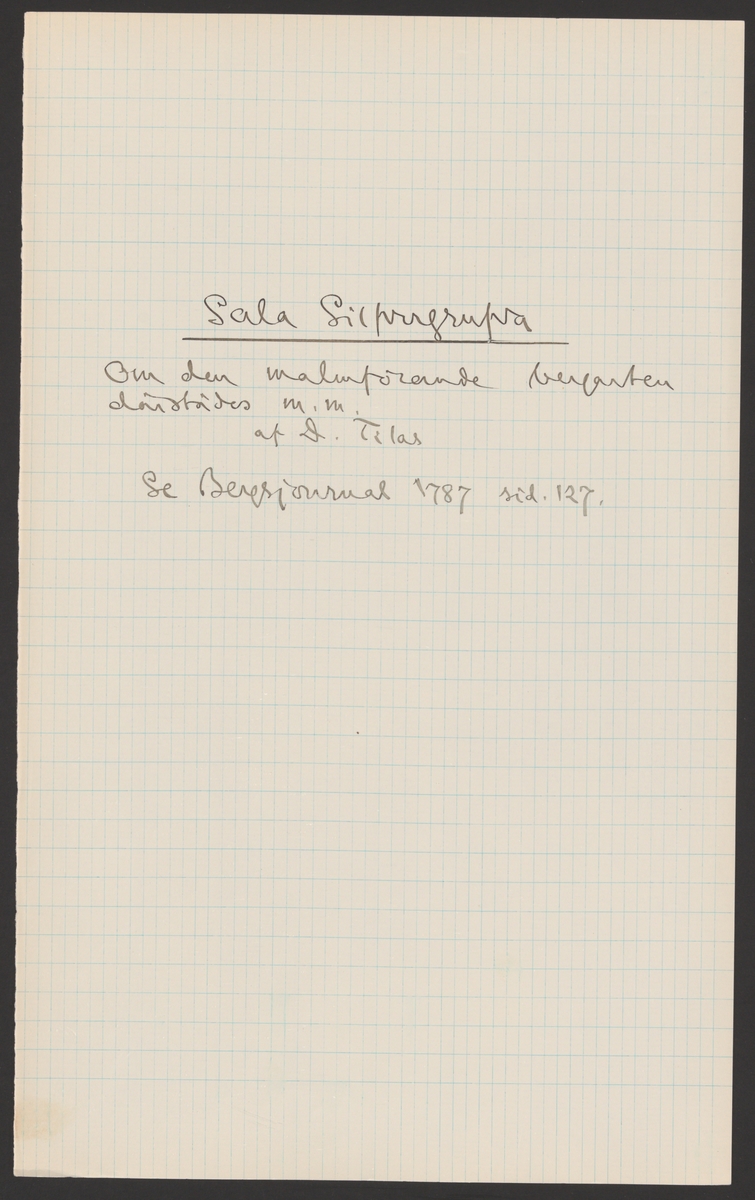 Sala Silfvergrufva
Om den malmförande bergarten
därstädes m.m.
af D. Tilas
Se Bergsjournal 1787 sid. 127.